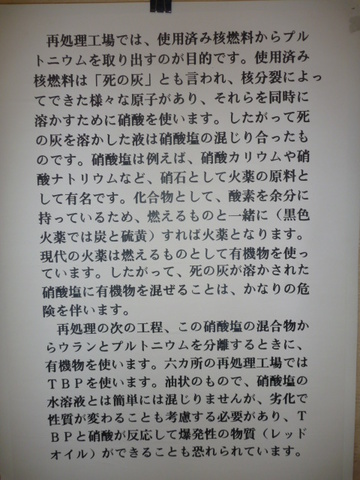 再処理工場では、使用済み核燃料からプル
トニウムを取り出すのが目的です。使用済み
核燃料は「死の灰」とも言われ、核分裂によっ
てできた様々な原子があり、それらを同時に
溶かすために硝酸を使います。したがって死
の灰を溶かした液は硝酸塩の混じり合ったも
のです。硝酸塩は例えば、硝酸カリウムや硝
酸ナトリウムなど、硝石として火薬の原料と
して有名です。化合物として、酸素を余分に
持っているため、燃えるものと一緒に（黒色
火薬では炭と硫黄）すれば火薬となります。
現代の火薬は燃えるものとして有機物を使っ
ています。したがって、死の灰が溶かされた
硝酸塩に有機物を混ぜることは、かなりの危
険を伴います。
再処理の次の工程、この硝酸塩の混合物か
らウランとプルトニウムを分離するときに、
有機物を使います。六カ所の再処理工場では
ＴＢＰを使います。油状のもので、硝酸塩の
水溶液とは簡単には混じりませんが、劣化で
性質が変わることも考慮する必要があり、Ｔ
ＢＰと硝酸が反応して爆発性の物質（レッド
オイル）ができることも恐れられています。